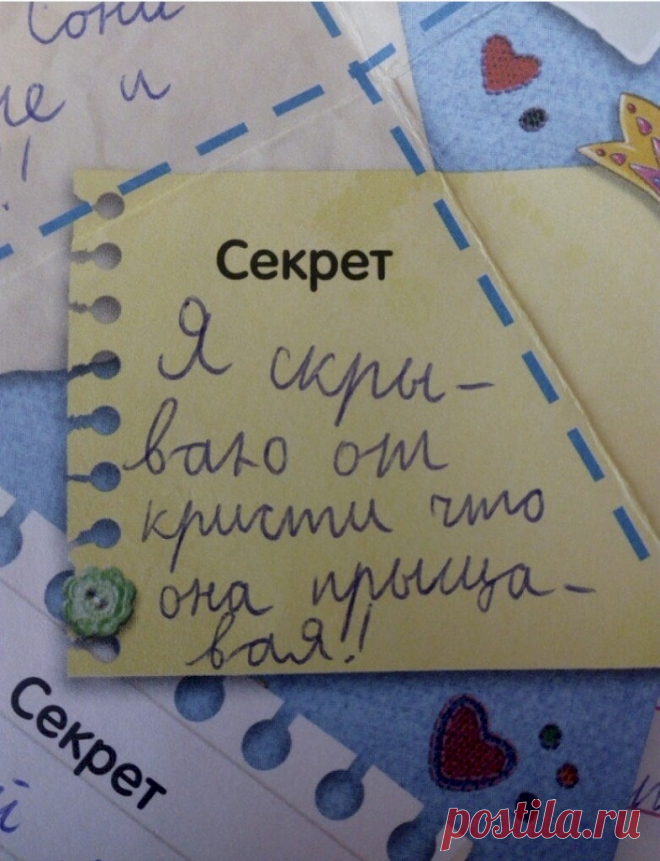 Сони
и
!
Секрет
Я скры-
ваю от
кристи что
она прыща-
вая!
Секрет
й
postila.ru